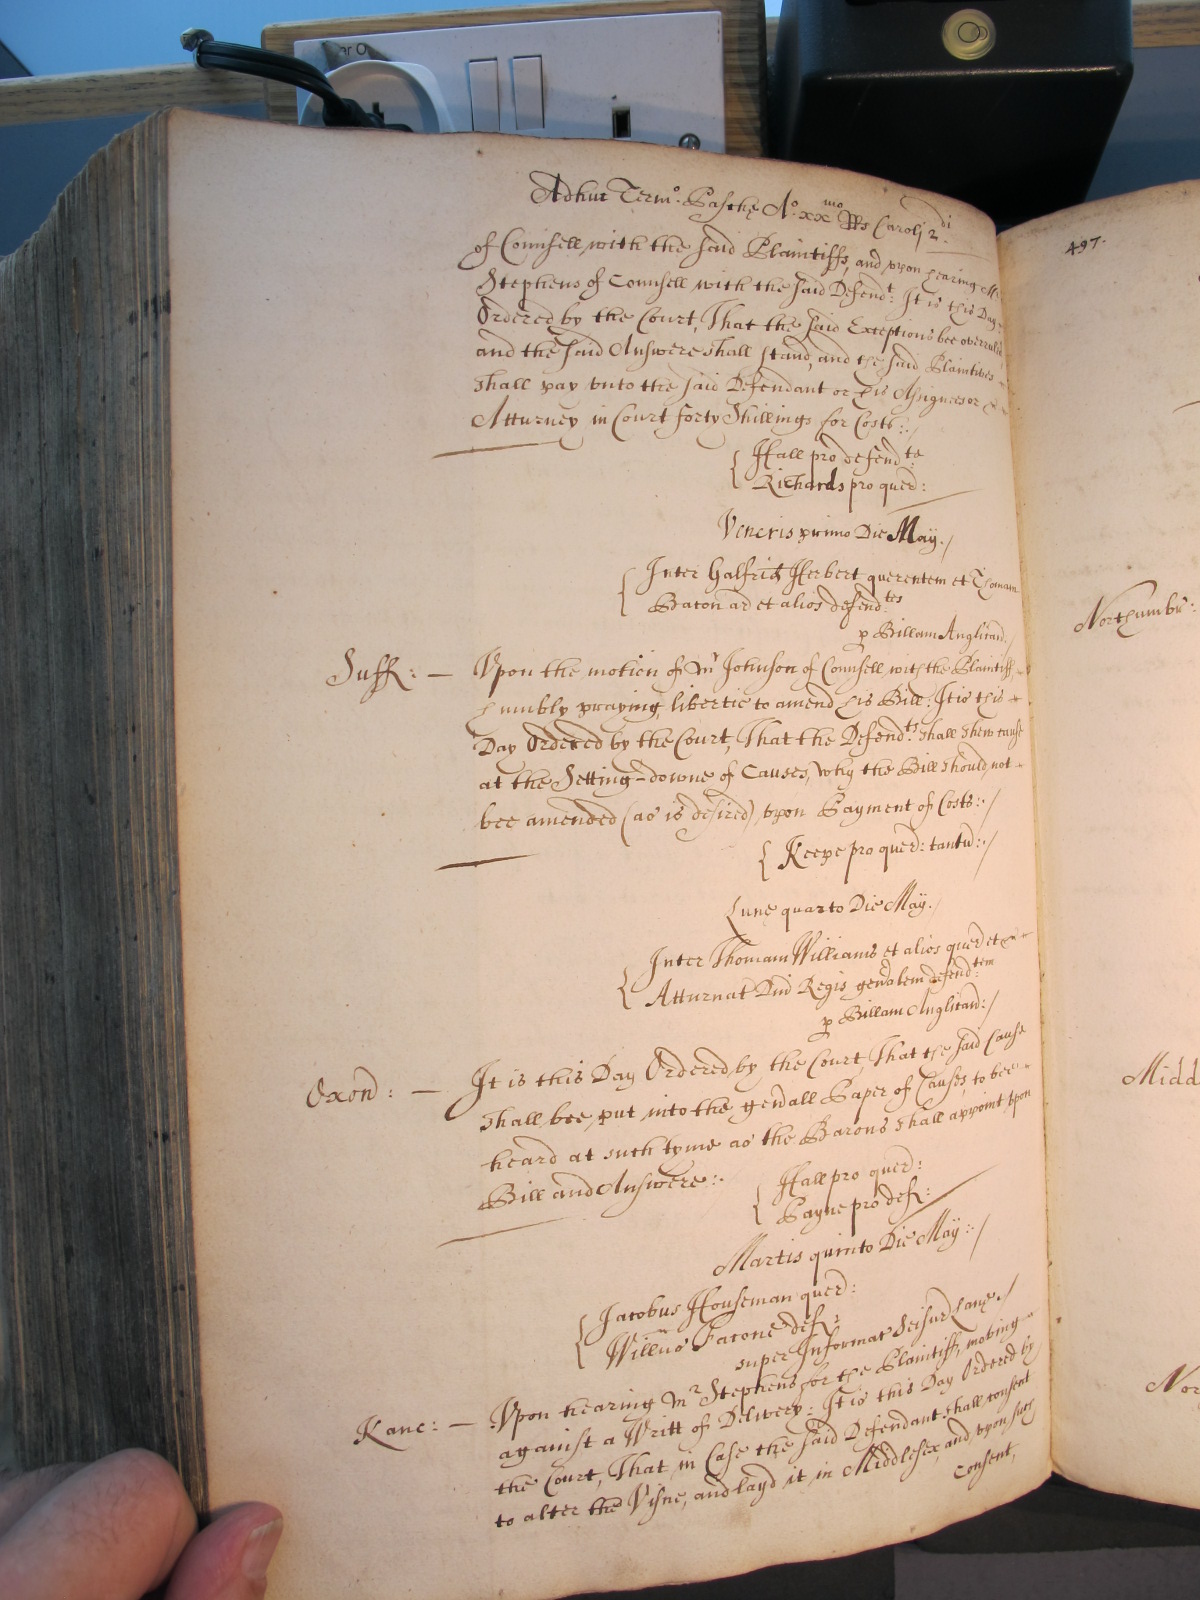 Adhuc Term:º Pasche Aº: xx mo R Rs Caroli 2 di
497.
of Counsell with the said Plaintiffs, and vpon hearing Mr
Stephens of Counsell with the said Defend:t It is this Day
Ordered by the Court, That the said Exceptions bee overruled
and the said Answere shall stand, and the said Plaintives
shall pay vnto the said Defendant or his Assignees or
Atturney in Court forty Shillings for Costs:./
{ Hall pro defend:te
Richards pro quer:
Veneris primo Die May./
{ Inter Galfrid Herbert querentem et Thomam
Bacon ar et alios defend:tes
p Billam Anglican:/
Suff: — Vpon the motion of Mr Johnson of Counsell with the Plaintiff
humbly praying libertie to amend his Bill: It is this
Day Ordered by the Court, That the Defend:ts shall shew cause
at the Setting-downe of Causes, why the Bill should not
bee amended (as is desired) vpon Payment of Costs:./
{ Keepe pro quer: tantu:./
Lune quarto Die May./
{ Inter Thomam Williams et alios quer et
Atturnat Dni Regis genalem defend:tem
p Billam Anglican:/
Oxon: — It is this Day Ordered by the Court That the said Cause
shall bee put into the genall Paper of Causes, to bee
heard at such tyme as the Barons shall appoint vpon
Bill and Answere:.
{ Hall pro quer:
Payne pro def:
Martis quinto Die May:./
{ Jacobus Houseman quer:
Willus Facone def:
super Informat Seisur Lane./
Kanc: — Vpon hearing Mr Stephens for the Plaintiff, moving
against a Writt of Delivery: It is this Day Ordered by
the Court, That in Case the said Defendant shall consent
to alter the Visne, and layd it in Middlesex, and vpon such
consent,
Northumbr:
Midd
Nor